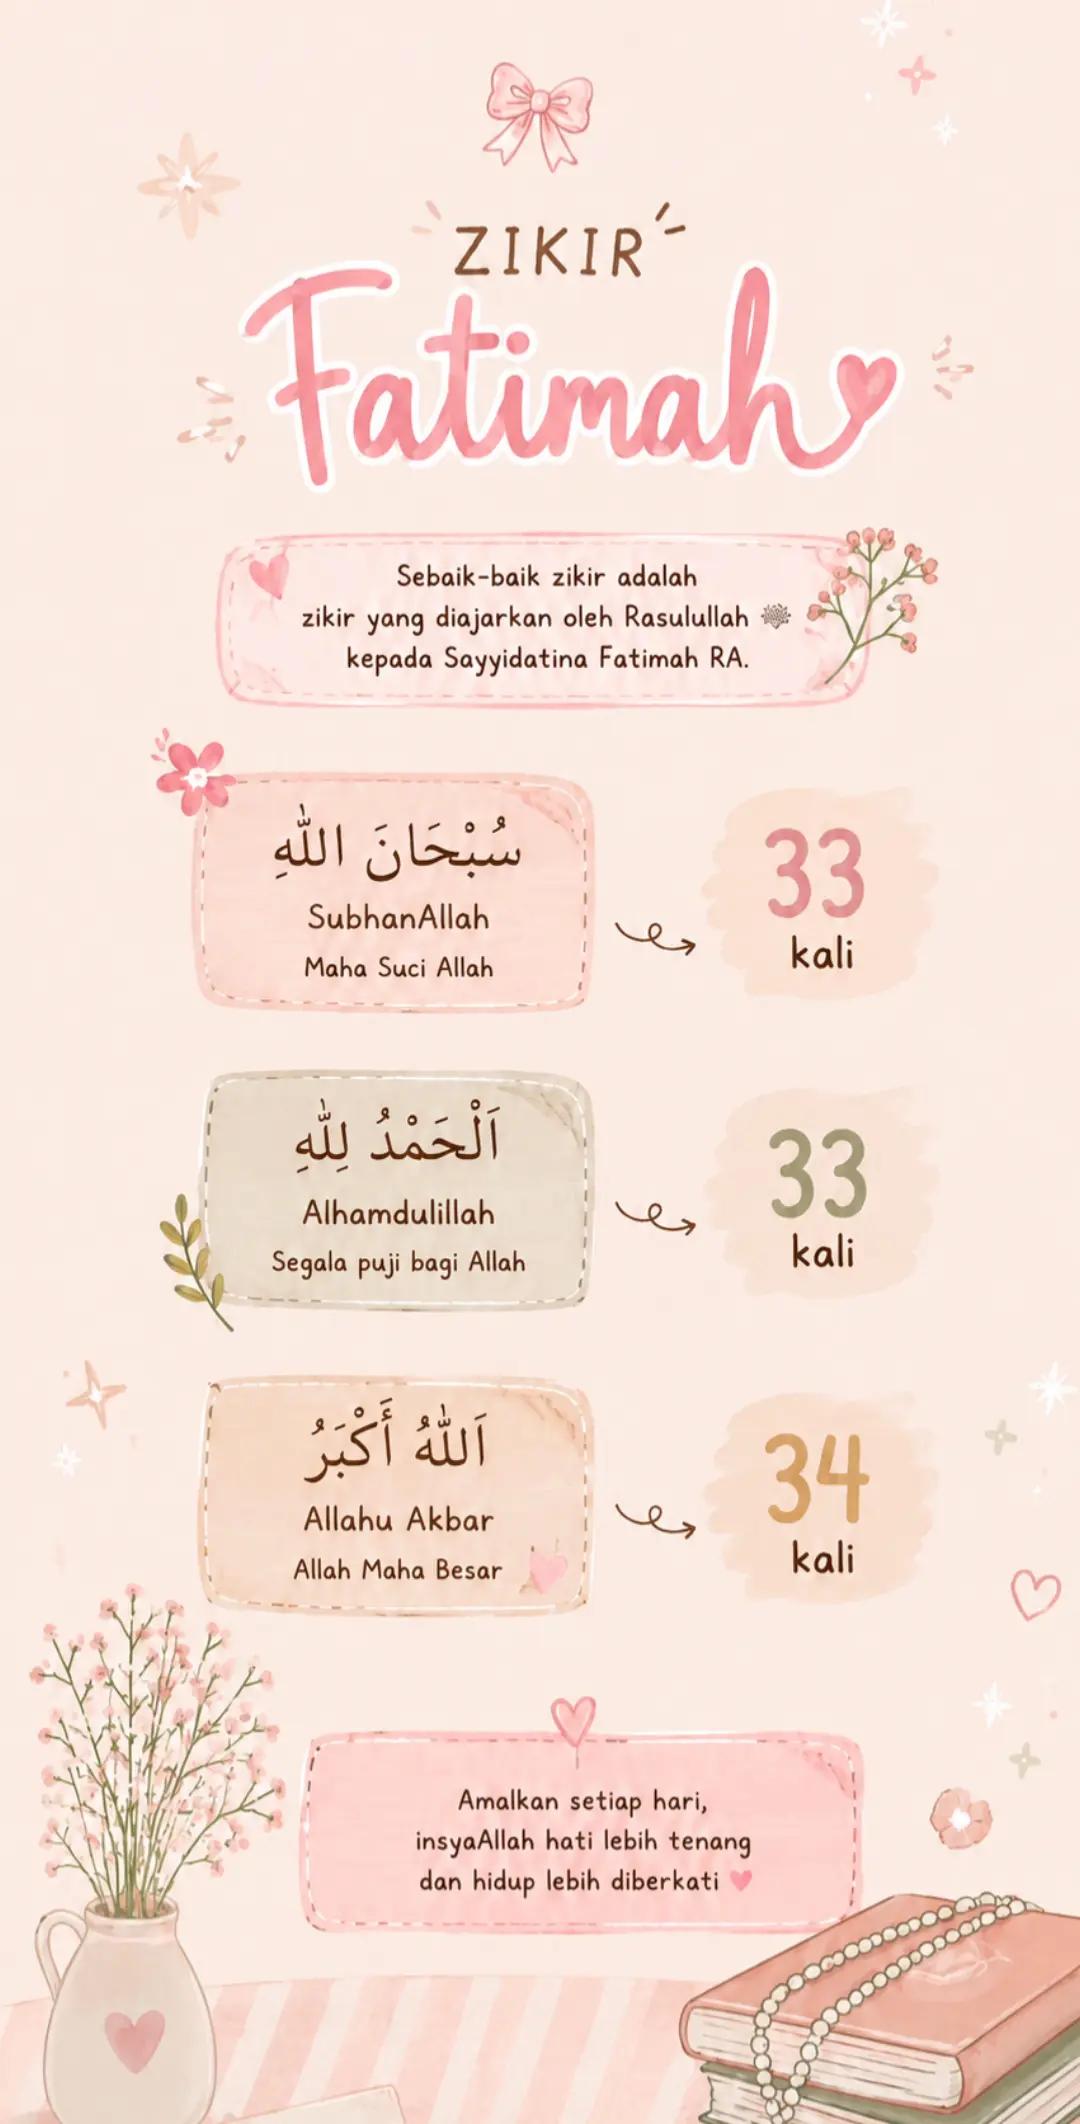 ZIKIR
Fatimah
Sebaik-baik zikir adalah
zikir yang diajarkan oleh Rasulullah ﷺ
kepada Sayyidatina Fatimah RA.
سُبْحَانَ اللّٰهِ
SubhanAllah
Maha Suci Allah
33
kali
اَلْحَمْدُ لِلّٰهِ
Alhamdulillah
Segala puji bagi Allah
33
kali
اَللّٰهُ أَكْبَرُ
Allahu Akbar
Allah Maha Besar
34
kali
Amalkan setiap hari,
insyaAllah hati lebih tenang
dan hidup lebih diberkati